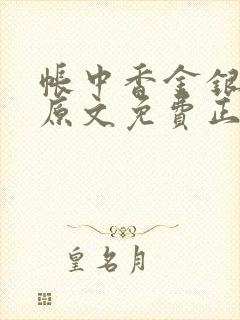 帳中香金銀
原文免費正
皇名月